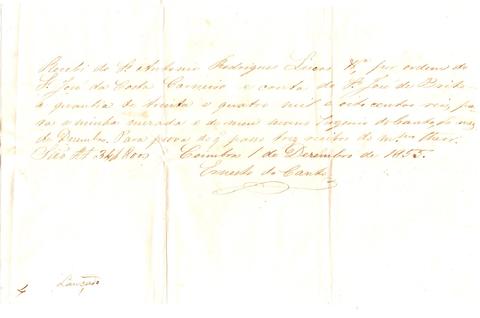 Recebi do Sr. Antonio Rodrigues Lucas por ordem do
Sr. José da Costa Carneiro e conta do Sr. José de Brito
a quantia de trinta e quatro mil e oito centos reis, pa
ra a minha mezada e de meu mano Eugenio do Canto, do mez
de Dezembro. Para prova de q. passo este recibo de
São Rs 34$800 Coimbra 1 de Dezembro de 1855.
Ernesto do Canto
Lançado